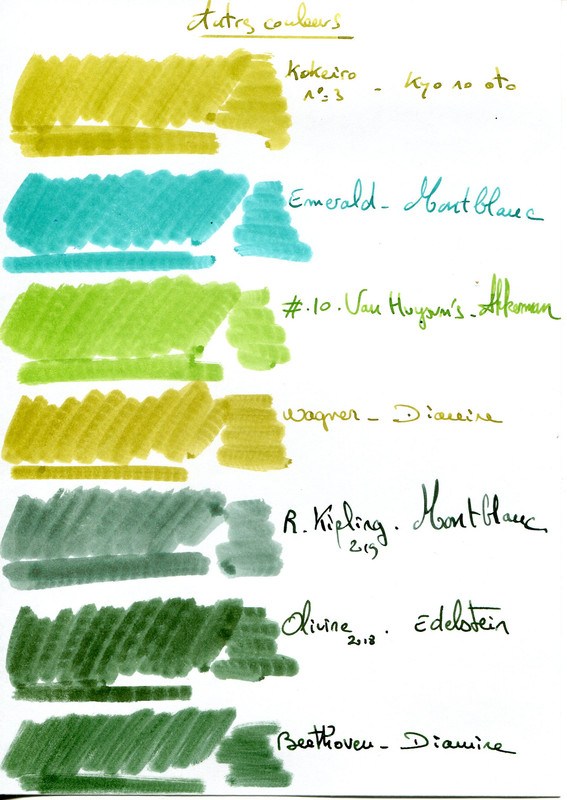 Autres couleurs
Kokeiro
n°=3 - Kyo no oto
Emerald - Montblanc
#.10. Van Huysum's - Akkerman
Wagner - Diamine
R. Kipling. Montblanc
2019
Olivine . Edelstein
2018
Beethoven - Diamine